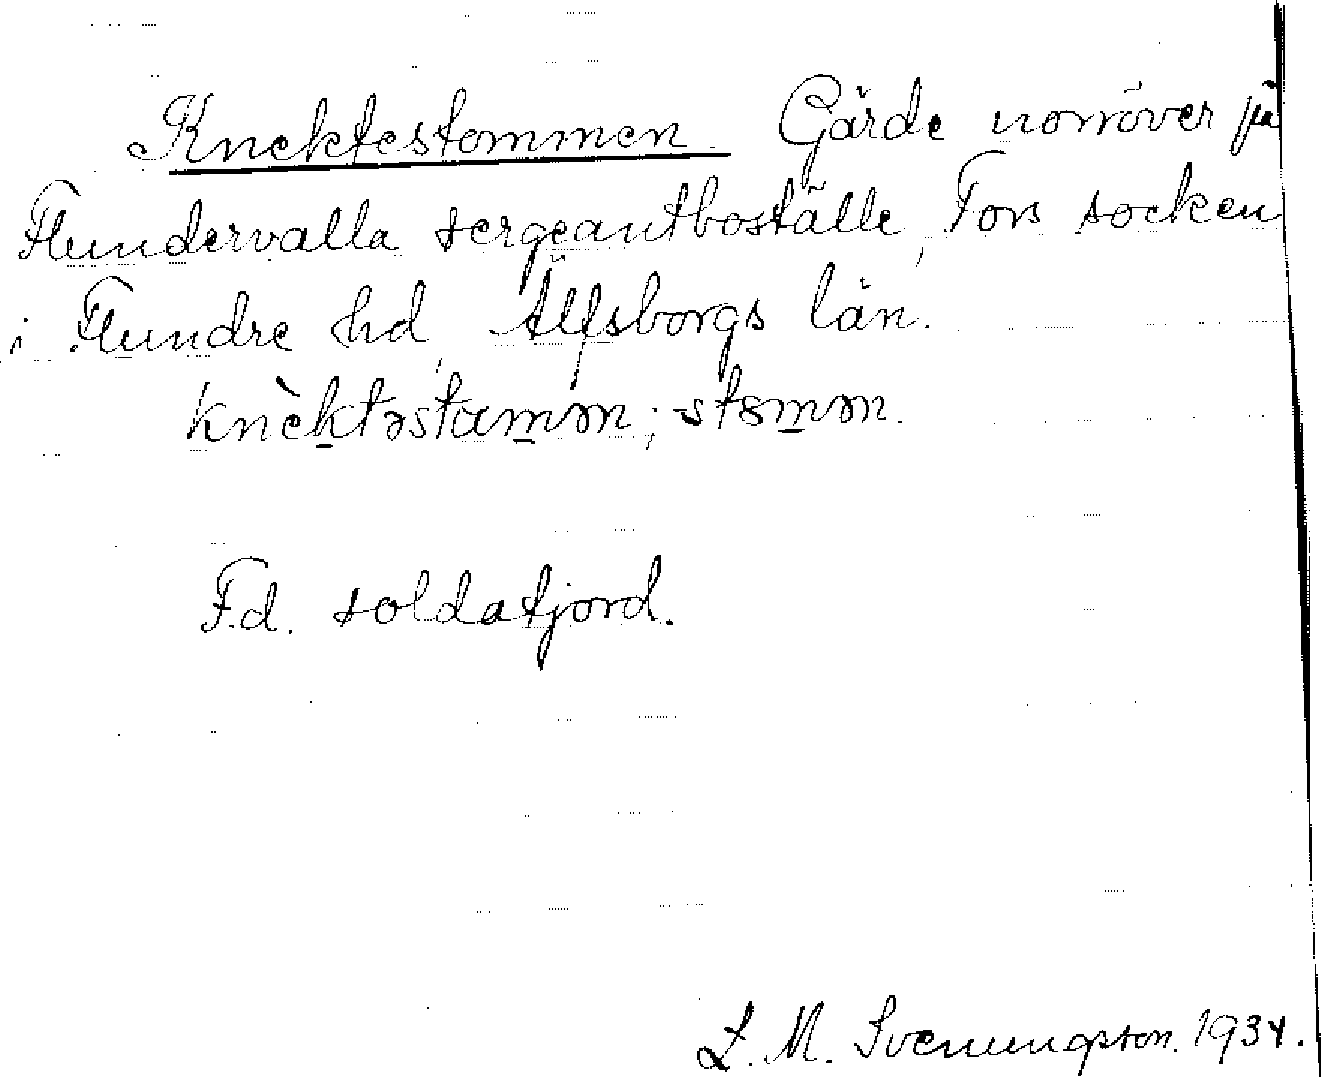 Knektestommen. Gärde norröver på
Flundervalla sergeantboställe, Fors socken
i Flundre hd, Älfsborgs län.
knèktəstamən; -stɵmən.
F.d. soldatjord.
L. M. Svenungsson. 1934.